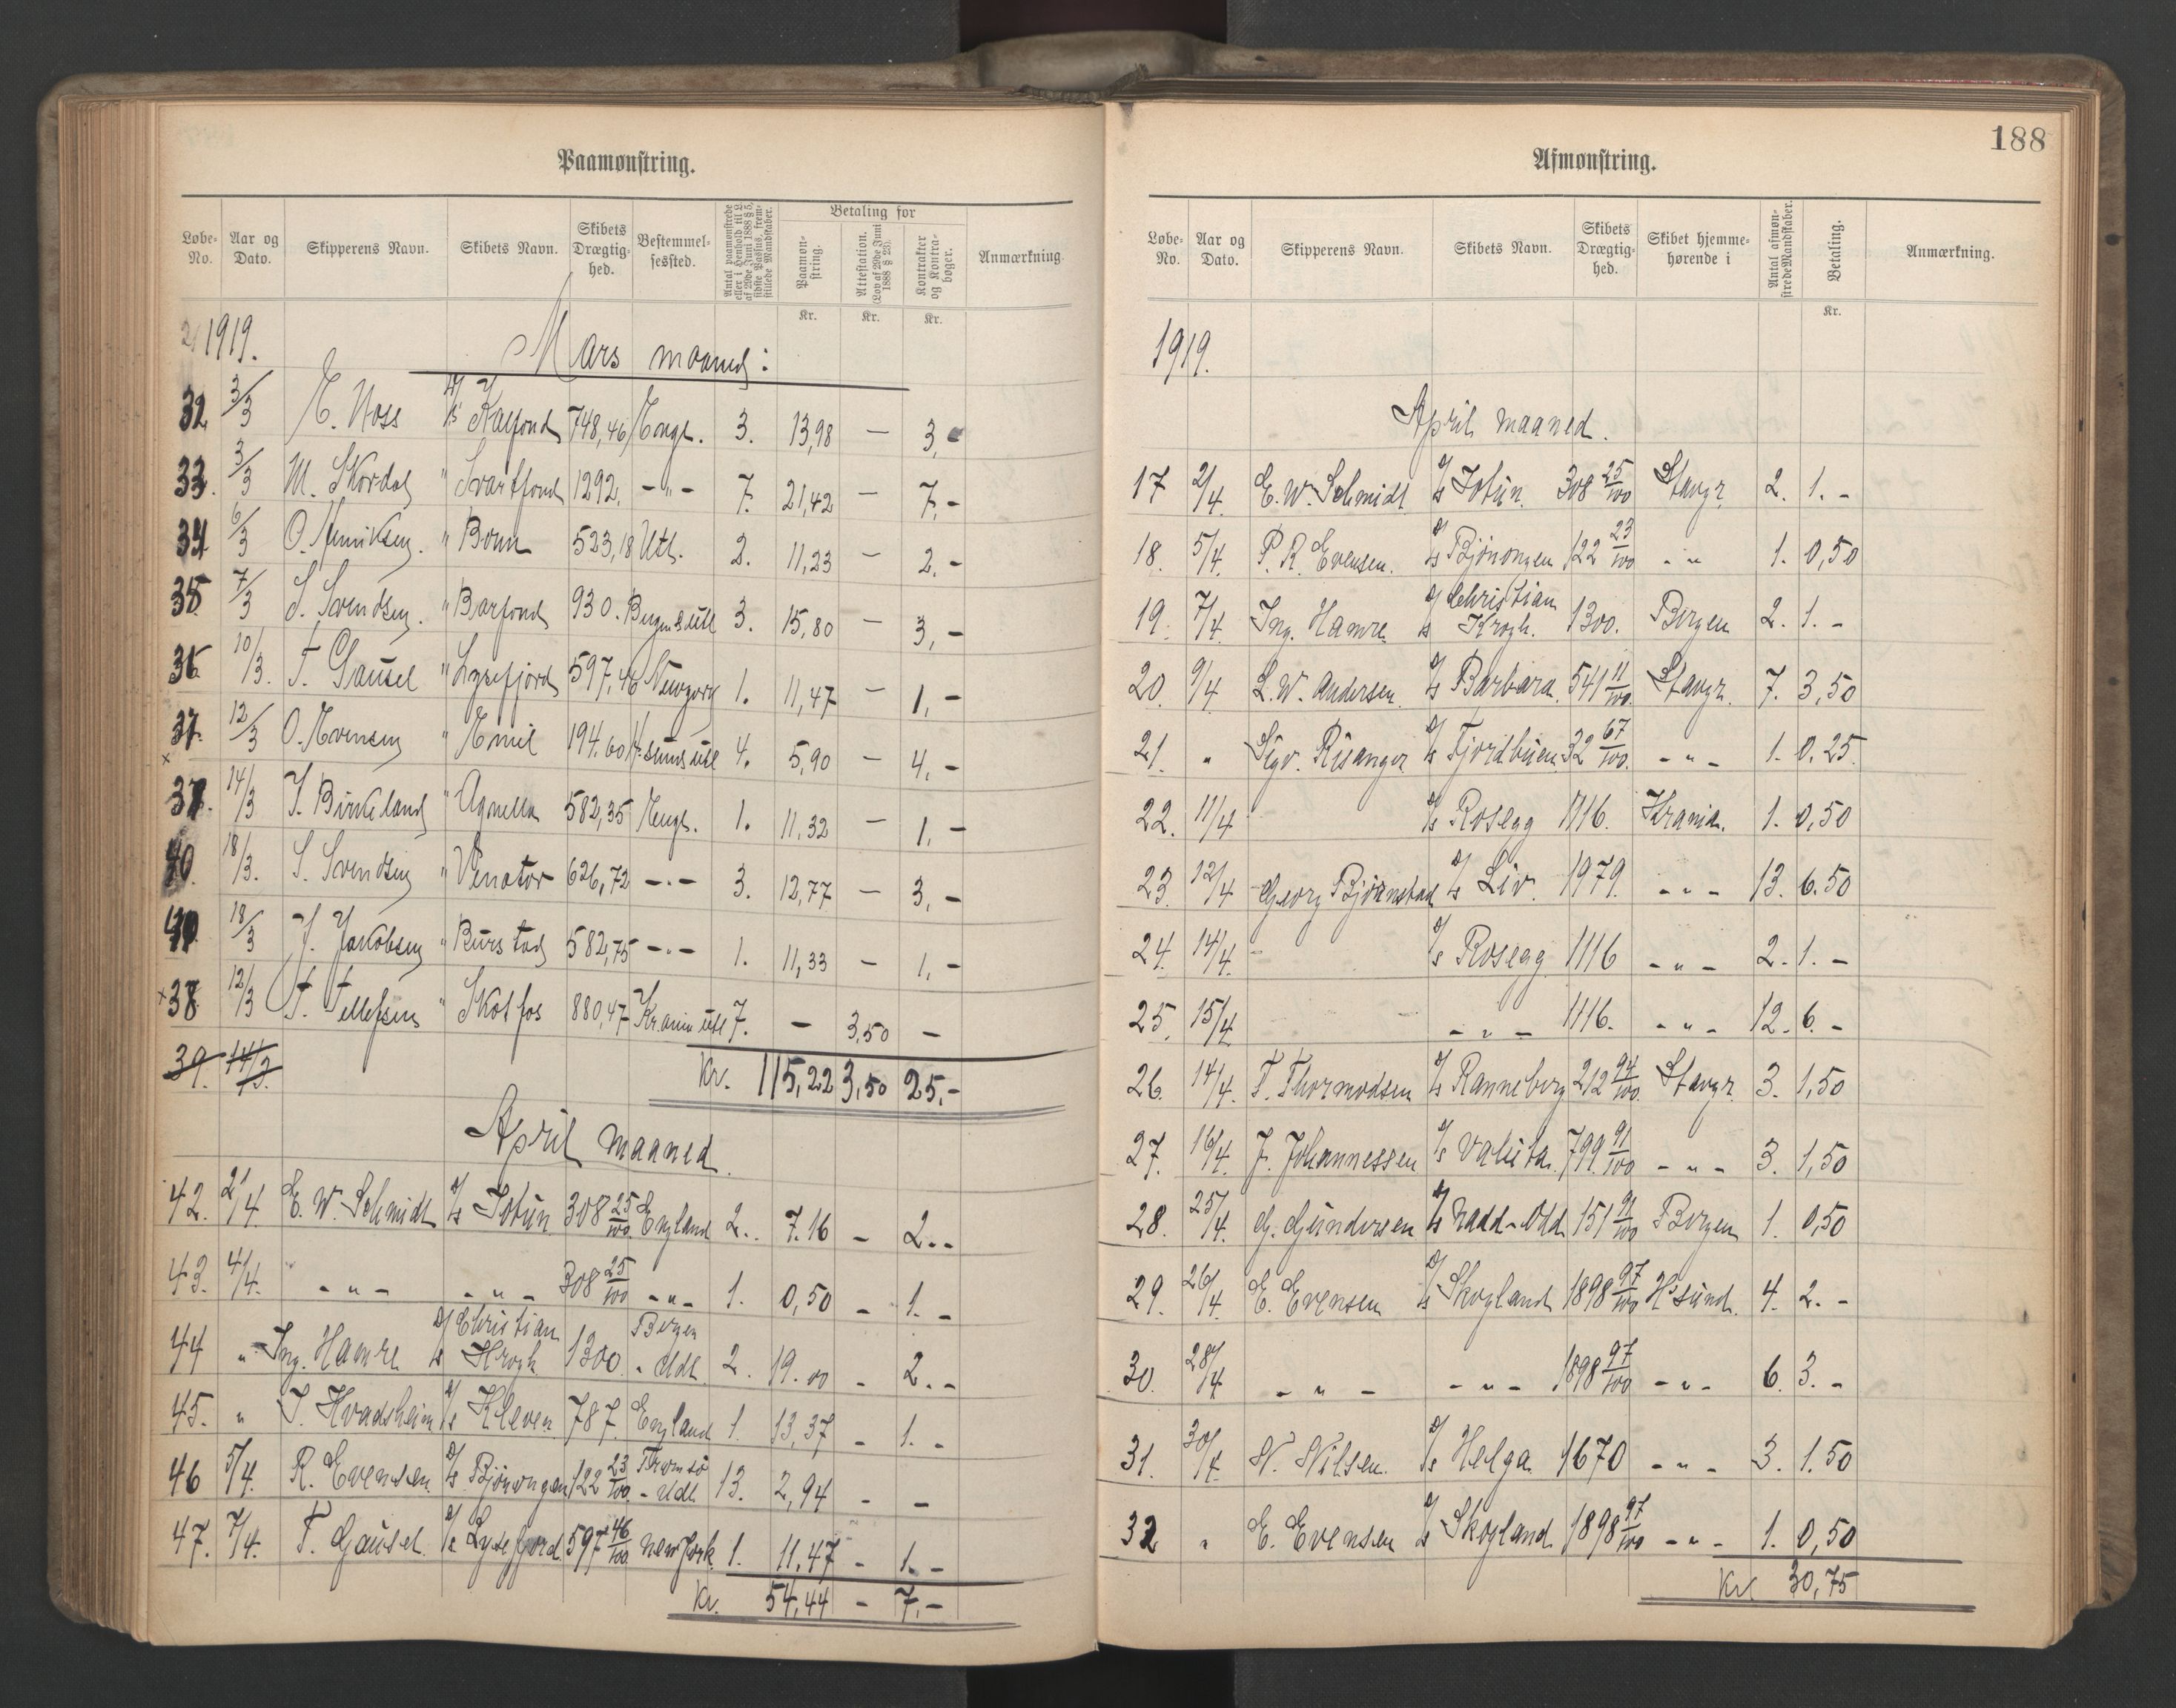 Paamønstring.
Løbe-No. Aar og Dato. Skipperens Navn. Skibets Navn. Skibets Drægtig-hed. Bestemmel-sessted. Antal paamønstrede eller i Henhold til L. af 29de Juni 1888 § 5, sidste Passus, frem-stillede Mandskaber. Betaling for Paamøn-string. Attestation. (Lov af 29de Juni 1888 § 23). Kontrakter og Kontra-bøger. Anmærkning
Kr. Kr. Kr.
1919. Mars maaned:
32 3/3 E. Noss D/S Kalfond 748,46 Engl. 3. 13,98 — 3,-
33. 3/3 M. Skordal " Svartfond 1292. -"- 7. 21,42 — 7,-
34 6/3 O. Henriksen. " Bonn 523,18 Utl. 2. 11,23 — 2.-
35 7/3 S. Svendsen. " Barfond 930. Bergen & utl 3. 15,80 — 3,-
36 10/3. T. Gausel " Lysefjord 597,46 Newyork 1. 11,47 — 1,-
37. 12/3 O. Evensen " Emil 194.60 H.sund utl 4. 5,90 — 4,-
x
14/3 J. Birkeland " Agnella 582,35 Engl. 1. 11,32 — 1,-
40. 18/3. S. Svendsen " Venator 626,72 -"- 3. 12,77 — 3,-
18/3 J. Jakobsen " Burstad 582,75 -"- 1. 11,33 — 1,-
x 38 12/3 T. Tellefsen " Skotfos 880,47 Kr.ania utl 7. — 3,50 —
39. 14/3. Kr. 115,22 3,50 25,-
April maaned.
42. 2/4. E. W. Schmidt D/S Jotun 308 25/100 England 2.. 7.16 - 2.-
43. 4/4. - " - - " - 308 25/100 - " - 1. 0,50 - 1. -
44 " Ing. Hamre D/S Christian Krogh 1300. Bergen - Udl. 2. 19.00 - 2.-
45. " T. Hvadsheim D/S Kleven 787. England 1. 13,37 - 1. -
46 5/4. R. Evensen D/S Bjönongen 122 23/100. Tromsö - Udl 13. 2,94 - -
47. 7/4. T. Gausel. D/S Lysefjord 597 46/100. New York 1. 11.47 - 1.-
Kr. 54,44 - 7,-
188
Afmønstring.
Løbe-No. Aar og Dato. Skipperens Navn. Skibets Navn. Skibets Drægtig-hed. Skibet hjemme-hørende i Antal afmøn-strede Mandskaber. Betaling. Anmærkning.
Kr.
1919.
April maaned.
17 2/4. E. W. Schmidt D/S Jotun. 308 25/100 Stavgr. 2. 1. -
18. 5/4. P. R. Evensen. D/S Bjönongen 122 23/100 - " - 1. 0,50
19. 7/4. Ing. Hamre D/S Christian Krogh. 1300. Bergen 2. 1. -
20. 9/4 L. W. Andersen. D/S Barbara. 541 11/100. Stavgr. 7. 3,50
21. " Sigv. Risanger D/S Fjordbuen 32 67/100. - " - 1. 0,25.
22. 11/4 D/S Rosegg 1116. Krania. 1. 0,50
23. 12/4 Georg Björnstad D/S Liv. 1979. - " - 13. 6.50
24. 14/4. D/S Rosegg 1116 - " - 2. 1. -
25. 15/4. - " - 1116. - " - 12. 6. -
26. 14/4. T. Thormodsen D/S Ranneberg 212 94/100. Stavgr. 3. 1,50
27. 16/4. J. Johannessen D/S Valuta. 799 91/100 - " - 3. 1,50
28. 25/4. G. Gundersen D/S Nadd-Odd 151 91/100 Bergen 1. 0,50
29. 26/4 E. Evensen D/S Skogland 1898 97/100 H'sund. 4. 2. -
30. 28/4 - " - - " - 1898 97/100 - " - 6. 3. -
31. 30/4. N. Nilsen. D/S Helga 1670 - " - 3. 1.50
32 " E. Evensen D/S Skogland 1898 97/100 - " - 1. 0,50
Kr 30,75